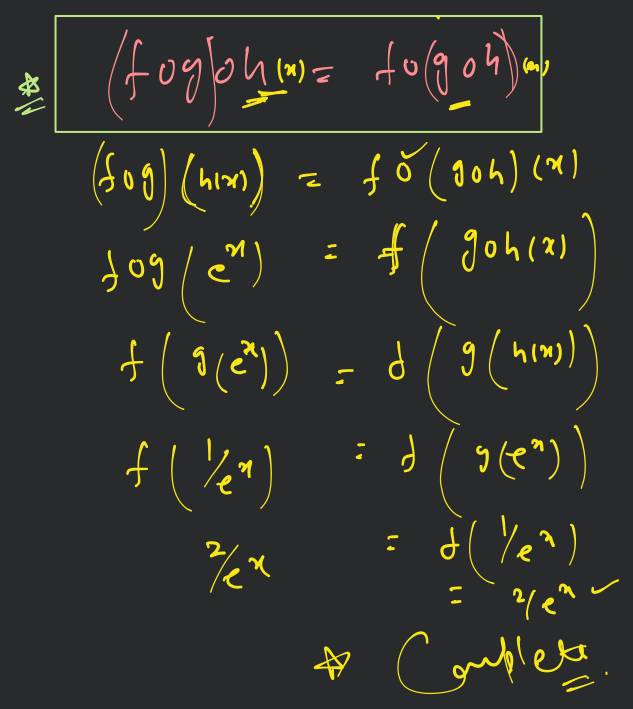 (fog)oh(x) = fo(goh)(x)
(fog)(h(x)) = fo(goh)(x)
fog(e^x) = f(goh(x))
f(g(e^x)) = f(g(h(x)))
f(1/e^x) = f(g(e^x))
2/e^x = f(1/e^x)
= 2/e^x ✓
☆ Complete.